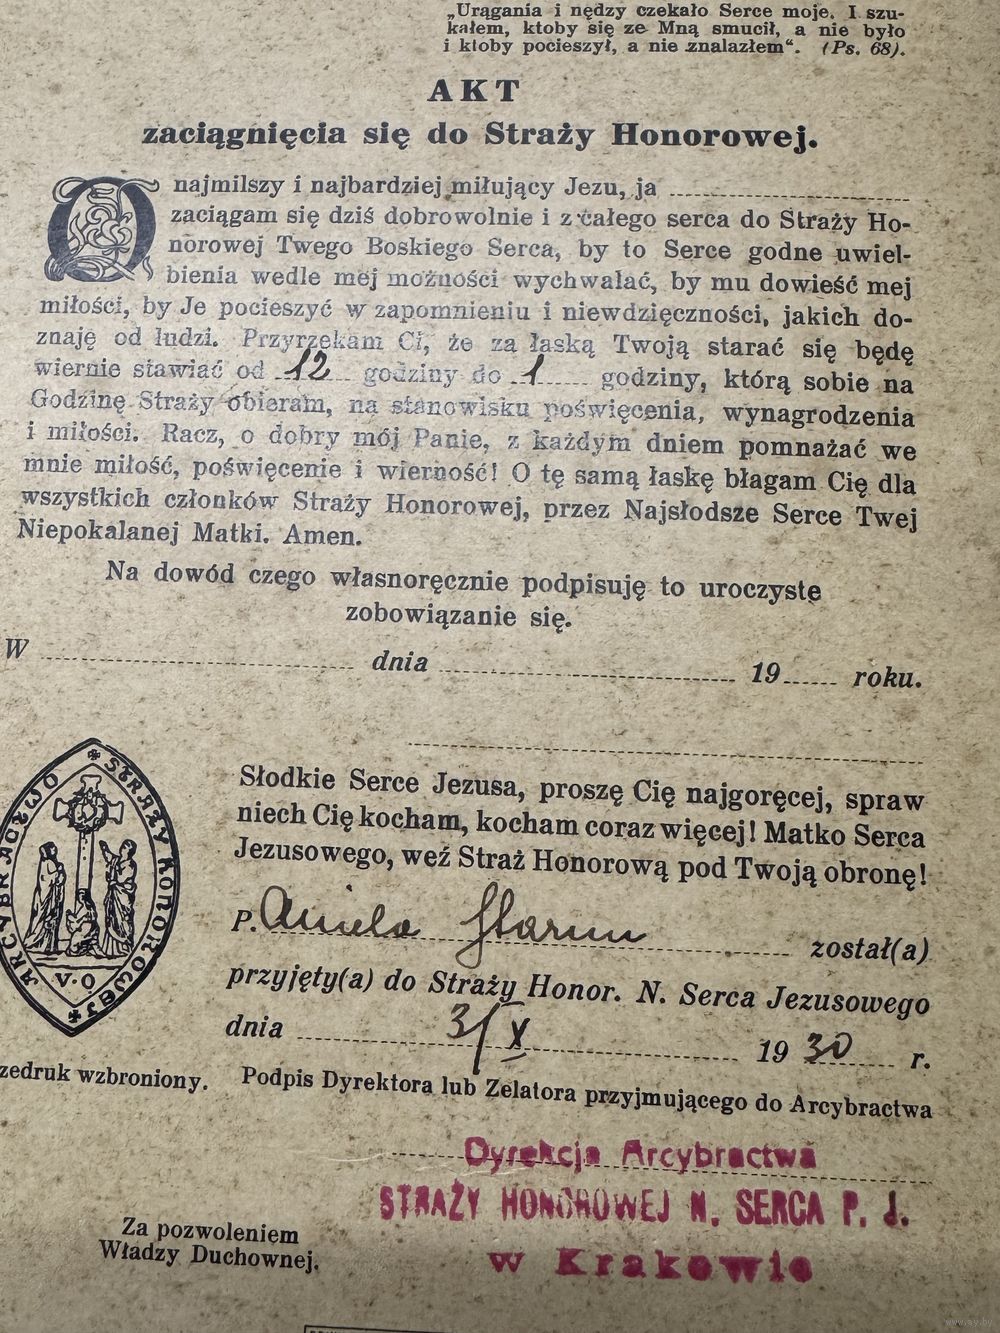 „Urągania i nędzy czekało Serce moje. I szu-
kałem, ktoby się ze Mną smucił, a nie było
i ktoby pocieszył, a nie znalazłem“. (Ps. 68).
AKT
zaciągnięcia się do Straży Honorowej.
O najmilszy i najbardziej miłujący Jezu, ja
zaciągam się dziś dobrowolnie i z całego serca do Straży Ho-
norowej Twego Boskiego Serca, by to Serce godne uwiel-
bienia wedle mej możności wychwalać, by mu dowieść mej
miłości, by Je pocieszyć w zapomnieniu i niewdzięczności, jakich do-
znaję od ludzi. Przyrzekam Ci, że za łaską Twoją starać się będę
wiernie stawiać od 12 godziny do 1 godziny, którą sobie na
Godzinę Straży obieram, na stanowisku poświęcenia, wynagrodzenia
i miłości. Racz, o dobry mój Panie, z każdym dniem pomnażać we
mnie miłość, poświęcenie i wierność! O tę samą łaskę błagam Cię dla
wszystkich członków Straży Honorowej, przez Najsłodsze Serce Twej
Niepokalanej Matki. Amen.
Na dowód czego własnoręcznie podpisuję to uroczyste
zobowiązanie się.
W dnia 19 roku.
ARCYBRACTWO STRAŻY HONOROWEJ
V.O
Słodkie Serce Jezusa, proszę Cię najgoręcej, spraw
niech Cię kocham, kocham coraz więcej! Matko Serca
Jezusowego, weź Straż Honorową pod Twoją obronę!
P. Aniela został(a)
przyjęty(a) do Straży Honor. N. Serca Jezusowego
dnia 3/X 1930 r.
zedruk wzbroniony.
Podpis Dyrektora lub Zelatora przyjmującego do Arcybractwa
Dyrekcja Arcybractwa
STRAŻY HONOROWEJ N. SERCA P. J.
w Krakowie
Za pozwoleniem
Władzy Duchownej.
www.ay.by